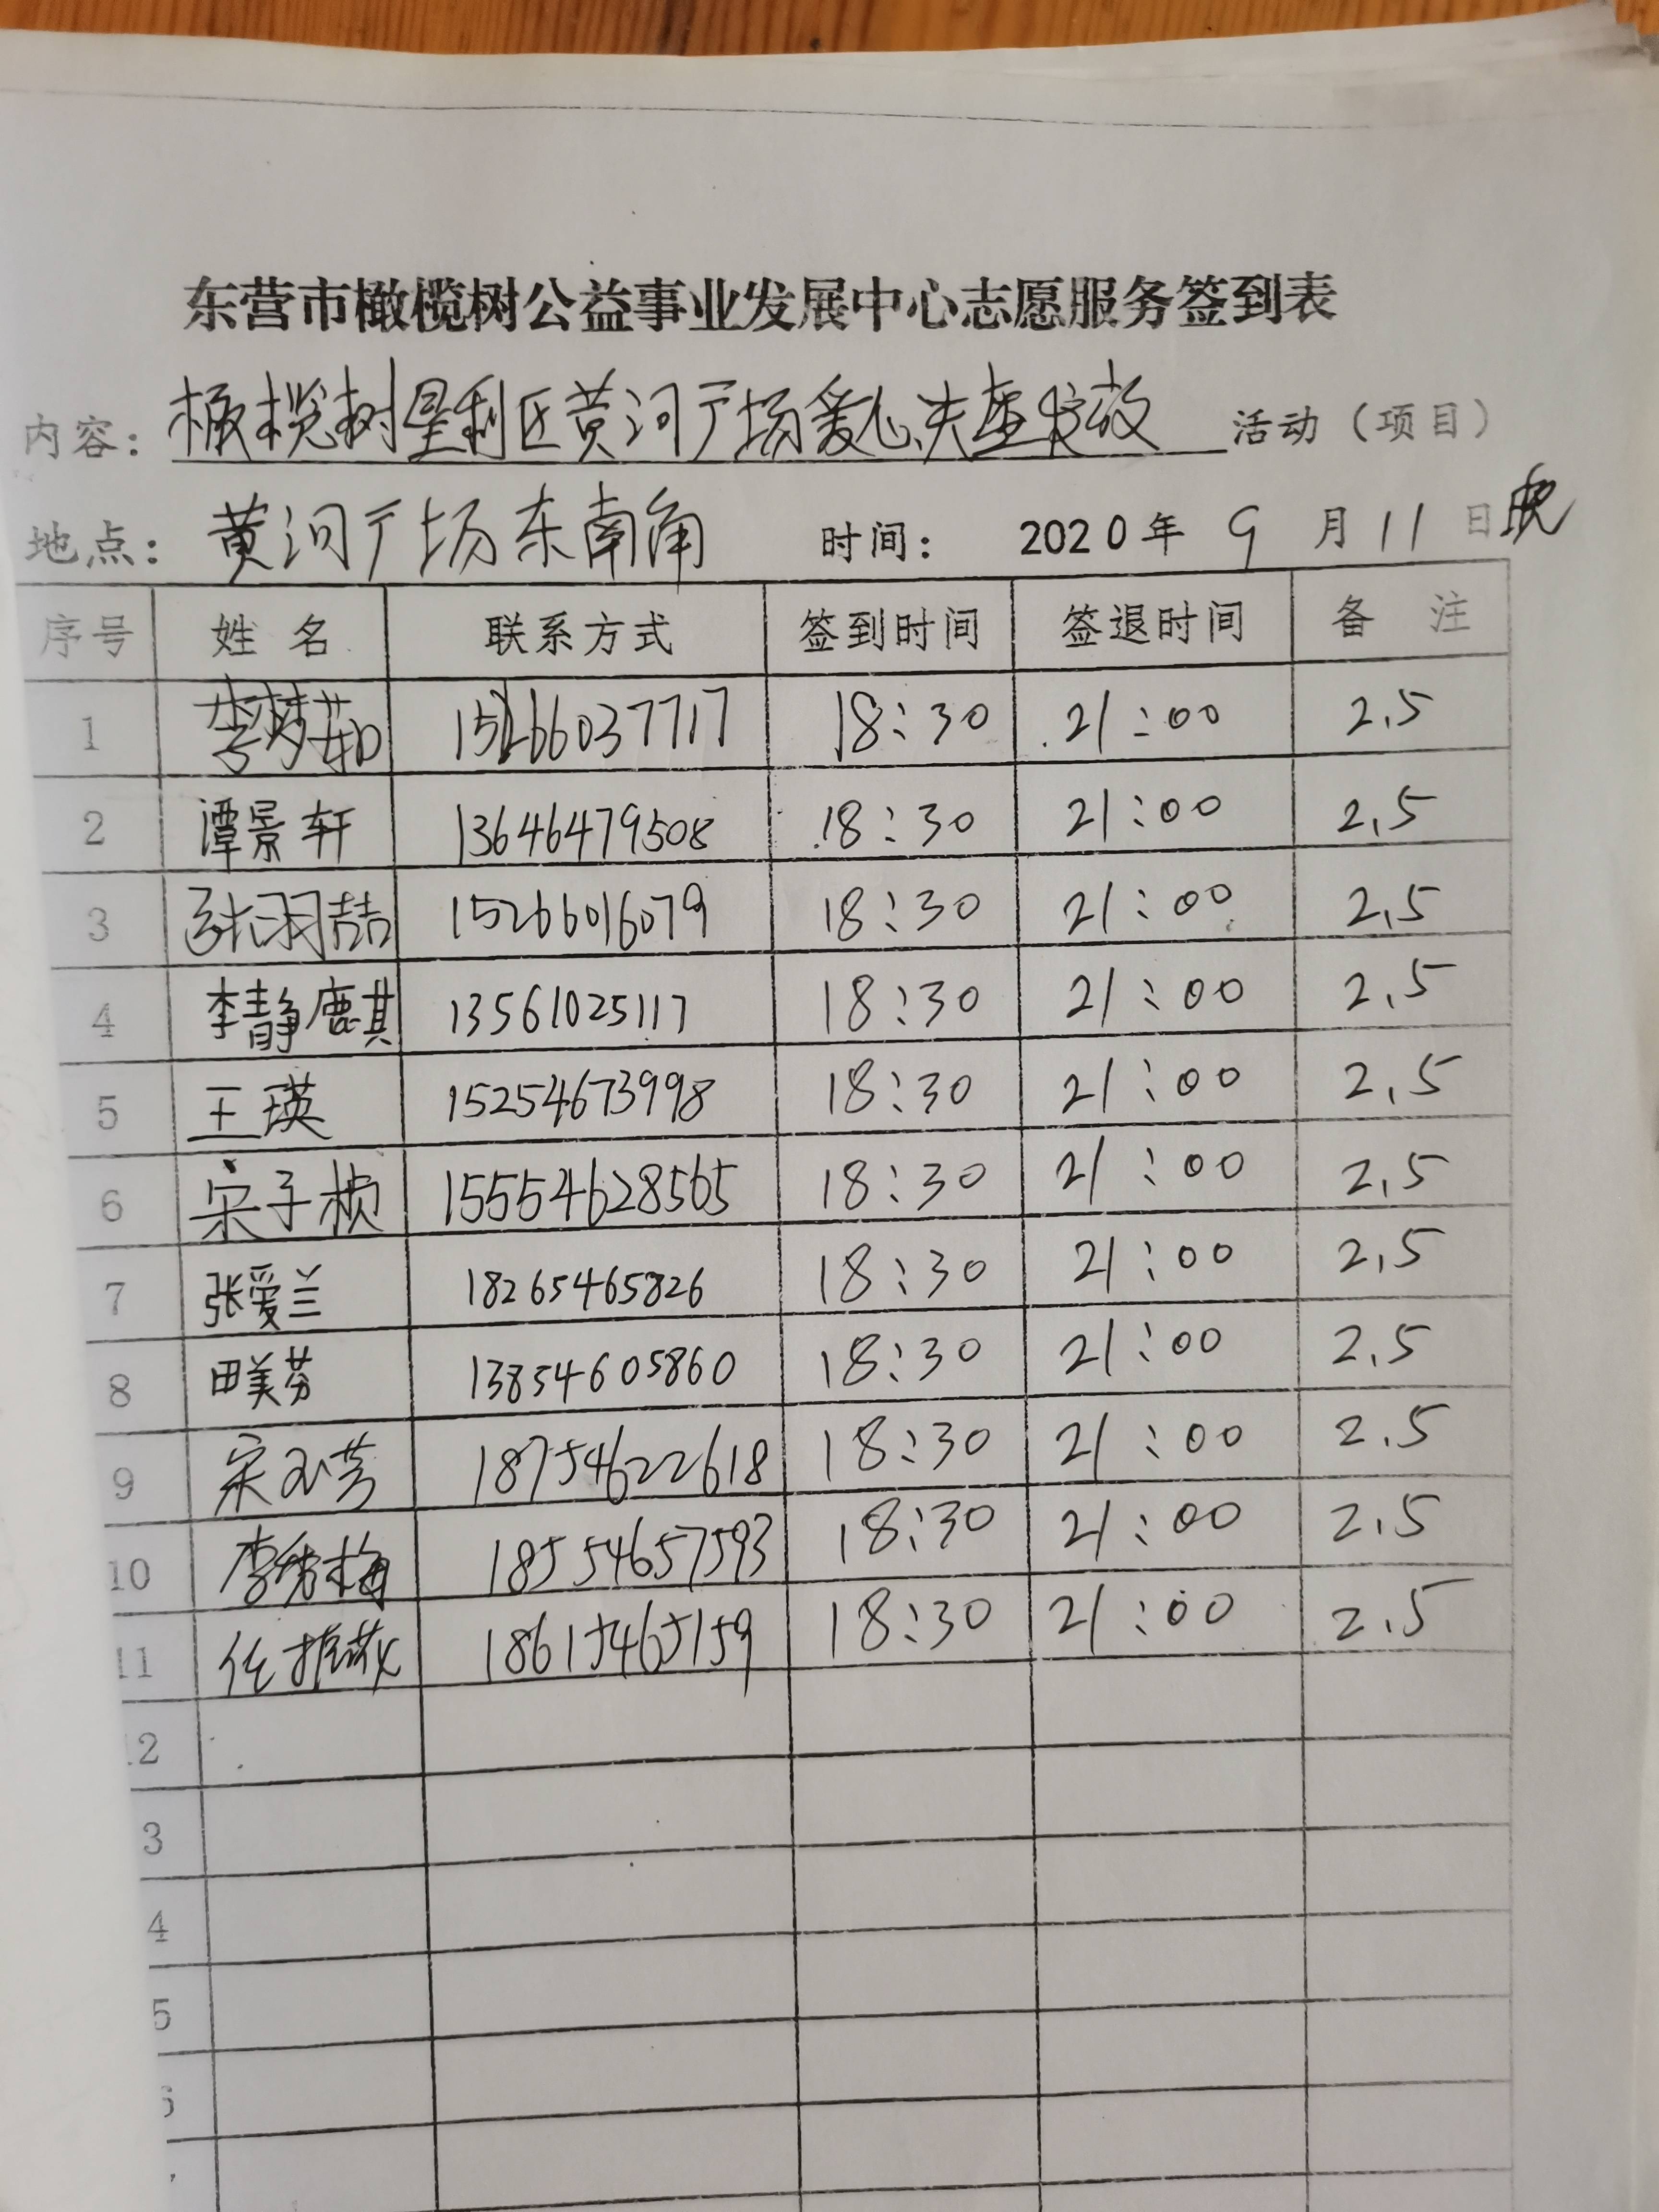 东营市橄榄树公益事业发展中心志愿服务签到表
内容：橄榄树垦利区黄河广场爱心 活动（项目）
地点：黄河广场东南角 时间： 2020年 9 月 11 日晚
序号 姓 名 联系方式 签到时间 签退时间 备 注
1 李梦茹 15266037717 18:30 21:00 2.5
2 谭景轩 13646479508 18:30 21:00 2.5
3 张羽喆 15266016079 18:30 21:00 2.5
4 李静鹿其 13561025117 18:30 21:00 2.5
5 王瑛 15254673998 18:30 21:00 2.5
6 宋子桢 15554628565 18:30 21:00 2.5
7 张爱兰 18265465826 18:30 21:00 2.5
8 田美芬 13854605860 18:30 21:00 2.5
9 宋玉芳 18754622618 18:30 21:00 2.5
10 李秀梅 18554657593 18:30 21:00 2.5
11 任 18615465159 18:30 21:00 2.5
2
3
4
5